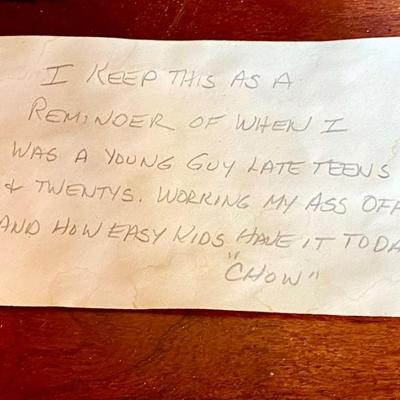 I KEEP THIS AS A
REMINDER OF WHEN I
WAS A YOUNG GUY LATE TEENS
& TWENTYS. WORKING MY ASS OFF
AND HOW EASY KIDS HAVE IT TODA
"CHOW"